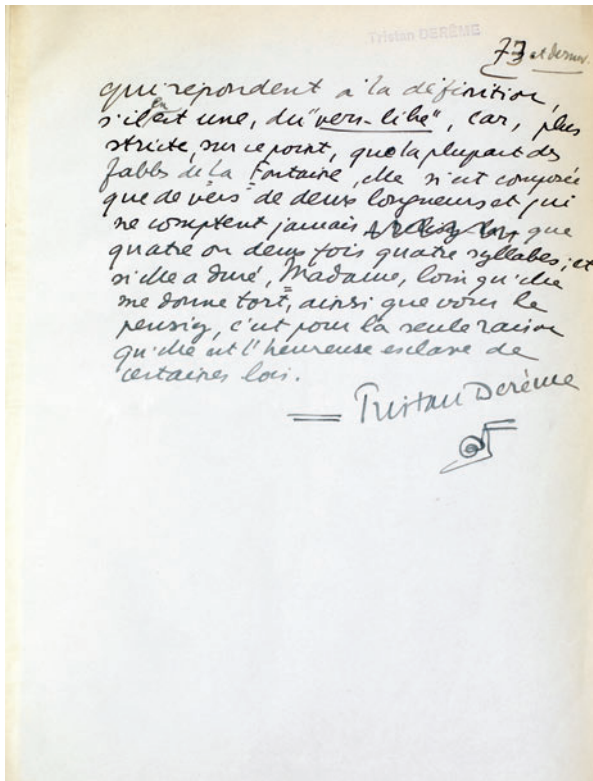 Tristan DERÊME
73 et dernier.
qui répondent à la définition,
s'il en est une, du "vers-libre", car, plus
stricte, sur ce point, que la plupart des
fables de La Fontaine, elle n'est composée
que de vers de deux longueurs et qui
ne comptent jamais que
quatre ou deux fois quatre syllabes; et
si elle a duré, Madame, loin qu'elle
me donne tort, ainsi que vous le
pensiez, c'est pour la seule raison
qu'elle est l'heureuse esclave de
certaines lois.
Tristan Derème